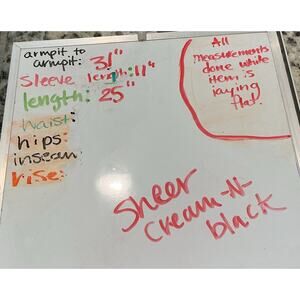 armpit to
armpit: 31"
Sleeve length: 11"
length: 25"
waist:
hips:
inseam:
rise:
All
measurements
done while
Item is
laying
flat.
Sheer
Cream-N-
black